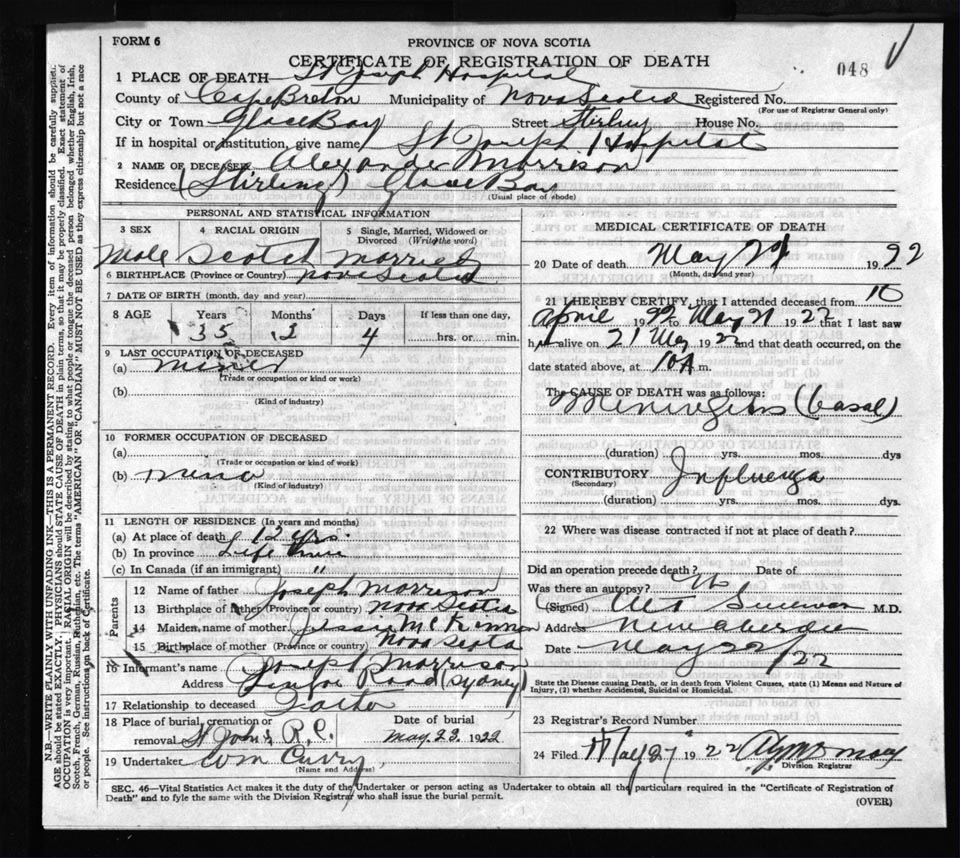 FORM 6
PROVINCE OF NOVA SCOTIA
CERTIFICATE OF REGISTRATION OF DEATH
048
1 PLACE OF DEATH— St Joseph Hospital
County of Cape Breton Municipality of Nova Scotia Registered No.
(For use of Registrar General only)
City or Town Glace Bay Street Stirling House No.
If in hospital or institution, give name St Joseph Hospital
2 NAME OF DECEASED Alexander Morrison
Residence (Stirling) Glace Bay
(Usual place of abode)
PERSONAL AND STATISTICAL INFORMATION
3 SEX 4 RACIAL ORIGIN 5 Single, Married, Widowed or Divorced (Write the word)
Male Scotch Married
6 BIRTHPLACE (Province or Country) Nova Scotia
7 DATE OF BIRTH (month, day and year)
8 AGE Years Months Days If less than one day,
35 3 4 hrs. or min.
9 LAST OCCUPATION OF DECEASED
(a) miner
(Trade or occupation or kind or work)
(b)
(Kind of industry)
10 FORMER OCCUPATION OF DECEASED
(a)
(Trade or occupation or kind or work)
(b)
(Kind of industry)
11 LENGTH OF RESIDENCE (In years and months)
(a) At place of death 12 yrs.
(b) In province Life time
(c) In Canada (if an immigrant) "
Parents
12 Name of father Joseph Morrison
13 Birthplace of father (Province or country) Nova Scotia
14 Maiden name of mother McKinnon
15 Birthplace of mother (Province or country) Nova Scotia
16 Informant's name Joseph Morrison
Address Road (Sydney)
17 Relationship to deceased Father
18 Place of burial, cremation or removal St John's R.C. Date of burial May 23. 1922
19 Undertaker Curry
(Name and Address)
MEDICAL CERTIFICATE OF DEATH
20 Date of death May 21 1922
(Month, day and year)
21 I HEREBY CERTIFY, that I attended deceased from 10
April 1922 to May 21 1922 that I last saw
h im alive on 21 May 1922 and that death occurred, on
date stated above, at 10 A m.
The CAUSE OF DEATH was as follows:
Meningitis (basal)
(duration) yrs. mos. dys
CONTRIBUTORY Influenza
(Secondary)
(duration) yrs. mos. dys.
22 Where was disease contracted if not at place of death?
Did an operation precede death? Date of
Was there an autopsy?
(Signed) Sullivan M.D.
Address New Aberdeen
Date May 22/22
State the Disease causing Death, or in death from Violent Causes, state (1) Means and Nature of
Injury, (2) whether Accidental, Suicidal or Homicidal.
23 Registrar's Record Number
24 Filed May 27 1922
Division Registrar
SEC. 46—Vital Statistics Act makes it the duty of the Undertaker or person acting as Undertaker to obtain all the particulars required in the "Certificate of Registration of
Death" and to fyle the same with the Division Registrar who shall issue the burial permit.
(OVER)
N.B.—WRITE PLAINLY WITH UNFADING INK—THIS IS A PERMANENT RECORD. Every item of information should be carefully supplied.
AGE should be stated EXACTLY. PHYSICIANS should STATE CAUSE OF DEATH in plain terms, so that it may be properly classified. Exact statement of
OCCUPATION is very important. RACIAL ORIGIN will be described by stating to what people or tongue the deceased person belonged whether English, Irish,
Scotch, French, German, Russian, Ruthenian, etc. The terms "AMERICAN" OR "CANADIAN" MUST NOT BE USED as they express citizenship but not a race
or people. See instructions on back of Certificate.